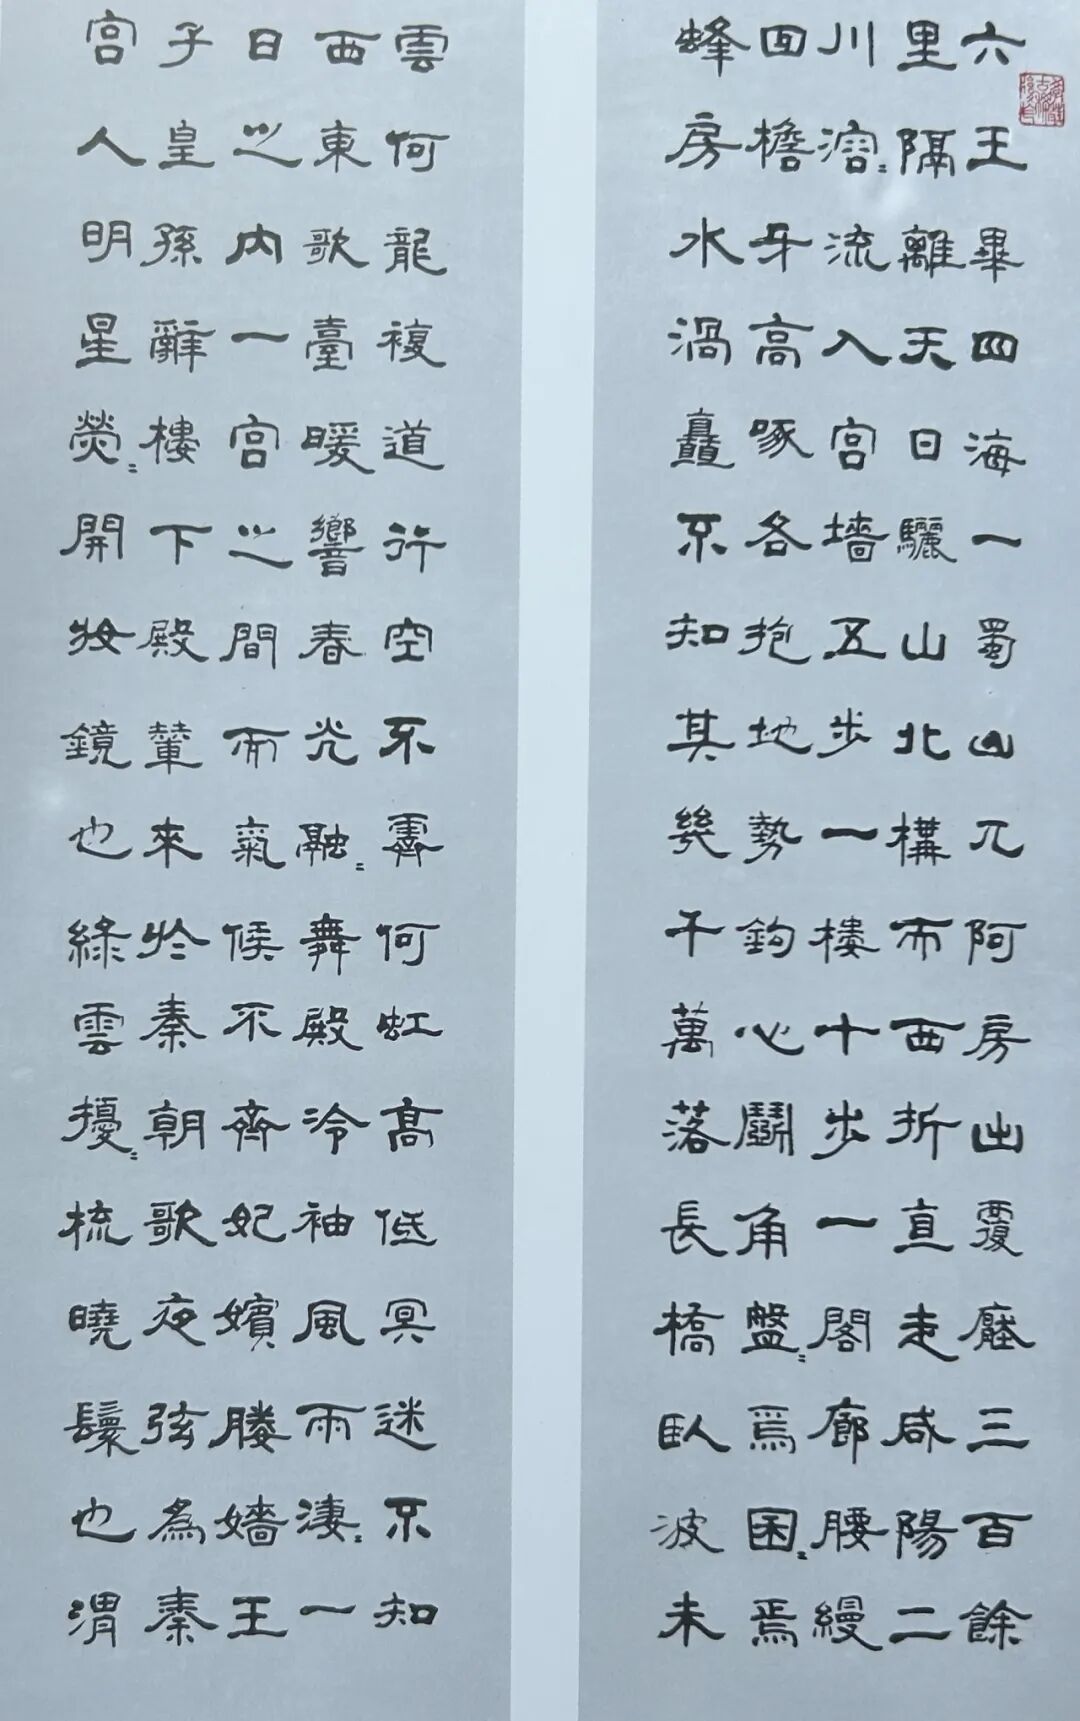 六王畢四海一蜀山兀阿房出覆壓三百餘
里隔離天日驪山北構而西折直走咸陽二
川溶〻流入宮墻五步一樓十步一閣廊腰縵
回檐牙高啄各抱地勢鉤心鬭角盤〻焉囷〻焉
蜂房水渦矗不知其幾千萬落長橋臥波未
雲何龍複道行空不霽何虹高低冥迷不知
西東歌臺暖響春光融〻舞殿冷袖風雨淒〻一
日之内一宮之間而氣候不齊妃嬪媵嬙王
子皇孫辭樓下殿輦來於秦朝歌夜弦為秦
宮人明星熒〻開妝鏡也綠雲擾〻梳曉鬟也渭